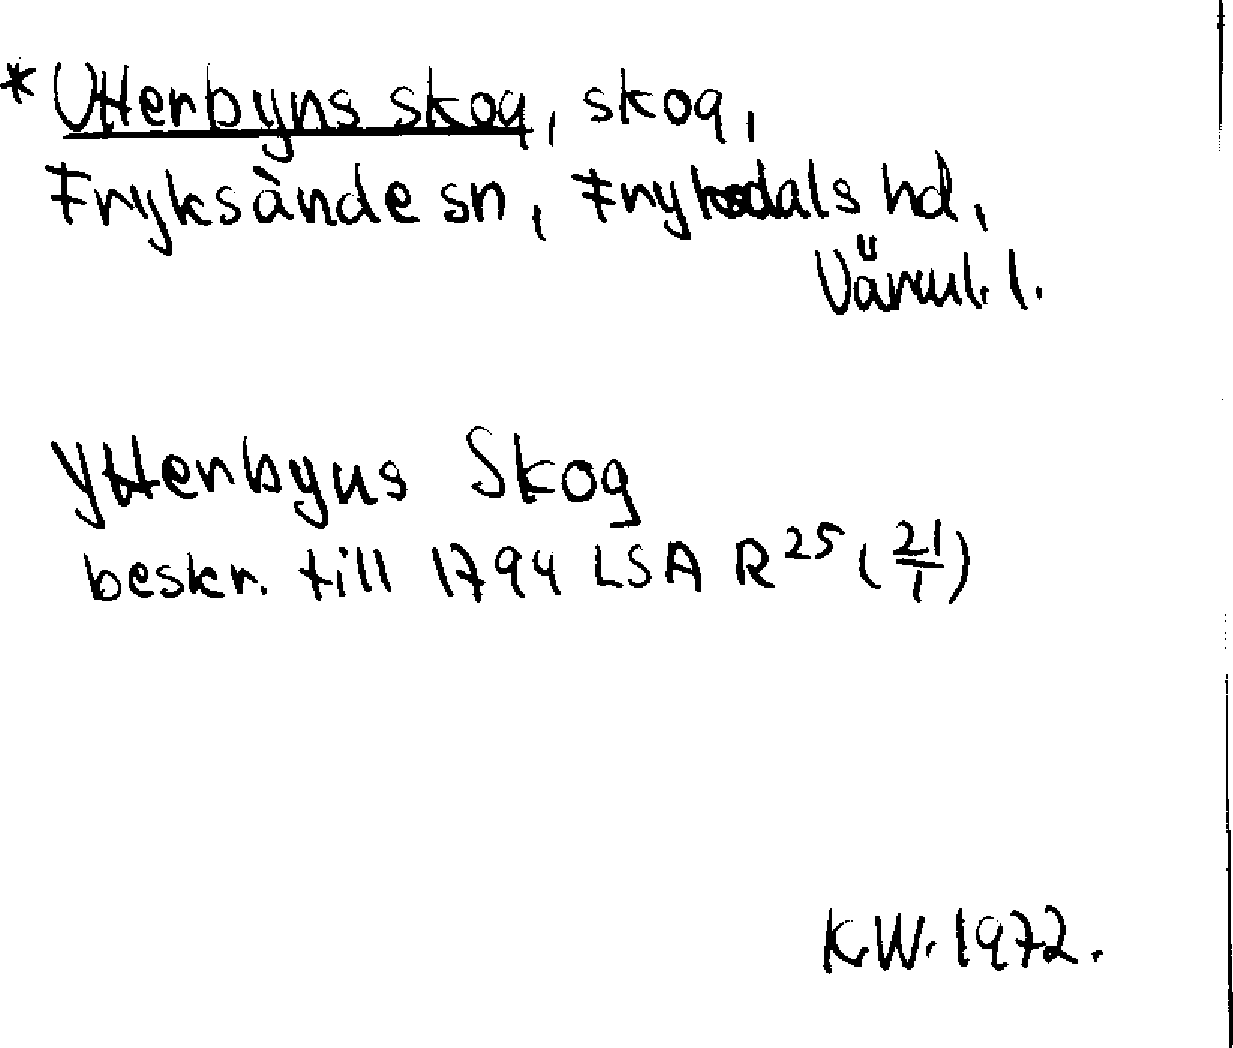 *Utterbyns skog, skog,
Fryksände sn, Fryksdals hd,
Värml. l.
Ytterbyns Skog
beskr. till 1794 LSA R 25 (21/1)
K.W. 1972.